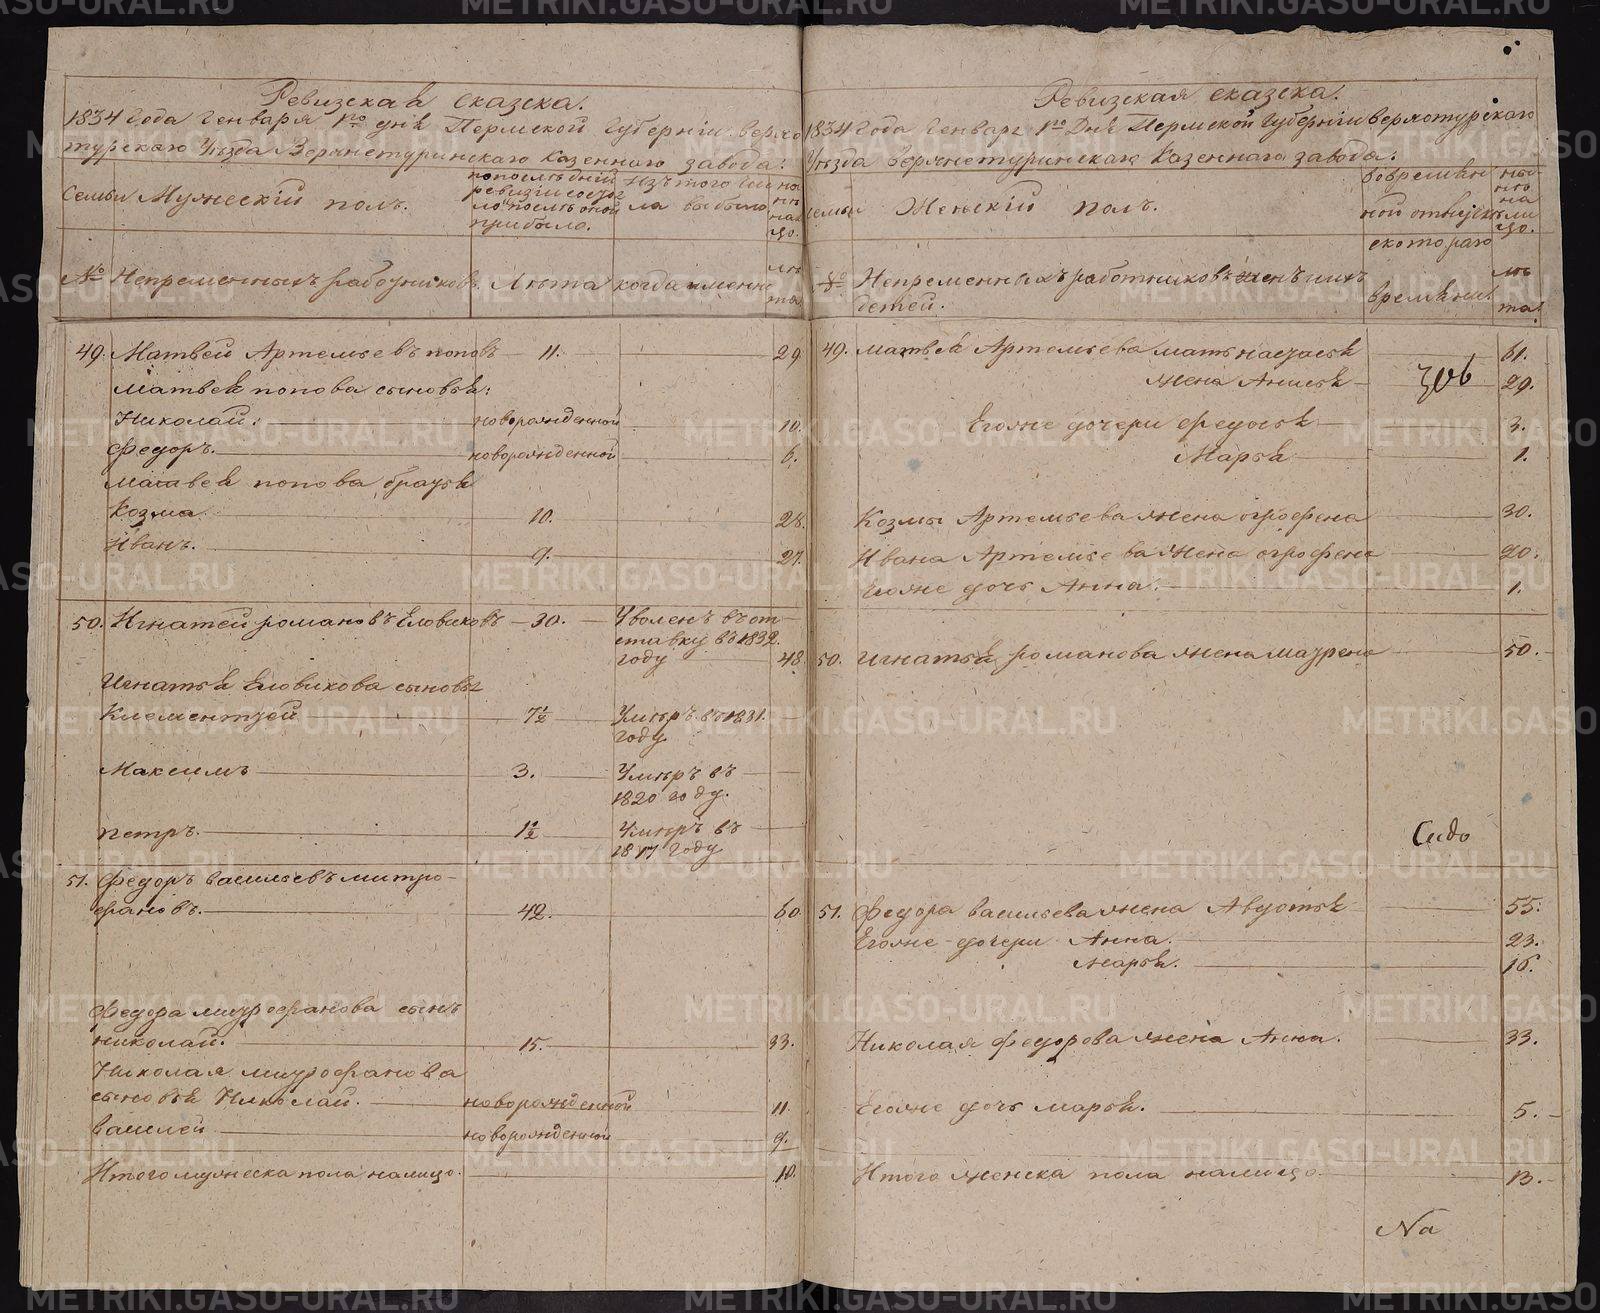 Ревизская сказка.
1834 Года Генваря 1го дня Пермской Губернiи Верхо
турскаго Уезда Верхнетуринскаго Казеннаго завода.
Семьи Мужескiй полъ.
по последней
ревизiи состоя
ло и после оной
прибыло.
Изъ того чи
сла выбыло
на
ли
цо.
№ Непременныхъ работниковъ. Лета когда именно
ле
та
49. Матвей Артемьевъ поповъ — 11. 29
Матвея попова сыновья:
Николай. новорожденной 10.
Федоръ. новорожденной 6.
Матвея попова братья
Козма 10. 28.
Иванъ. 9. 27.
50. Игнатей романовъ Еловиковъ — 30. Уволенъ въ от
ставку въ 1832.
году 48.
Игнатья Еловикова сыновья
Клементей 7½ Умеръ въ 1831.
году.
Максимъ 3. Умеръ въ
1820 году.
петръ. 1½ Умеръ въ
1817 году
51. Федоръ васильевъ митро-
фановъ. 42. 60
Федора митрофанова сынъ
николай. 15. 33.
Николая митрофанова
сыновья Николай. новорожденной 11.
василей новорожденной 9.
Итого мужеска пола налицо. 10.
Ревизская сказска.
1834 Года Генваря 1го Дня Пермской Губернiи Верхотурскаго
Уезда Верхнетуринскаго Казеннаго завода.
семьи Женскiй полъ.
во времян
ной отлучке
с котораго
времени.
ны-
не
на
ли
цо.
ле
та.
№ Непременныхъ работниковъ женъ и ихъ
детей.
49. Матвея Артемьева мать настасья 61.
жена Анисья 306 29.
Егоже дочери федосья 3.
Марья 1.
Козмы Артемьева жена огрофена 30.
Ивана Артемьева жена огрофена 20.
Егоже дочь Анна. 1.
50. Игнатья романова жена маурена 50.
Сидо
51. Федора васильева жена Авдотья 55.
Егоже дочери Анна. 23.
марья. 16.
Николая Федорова жена Анна. 33.
Егоже дочь марья. 5.
Итого женска пола налицо 13.
На
METRIKI.GASO-URAL.RU